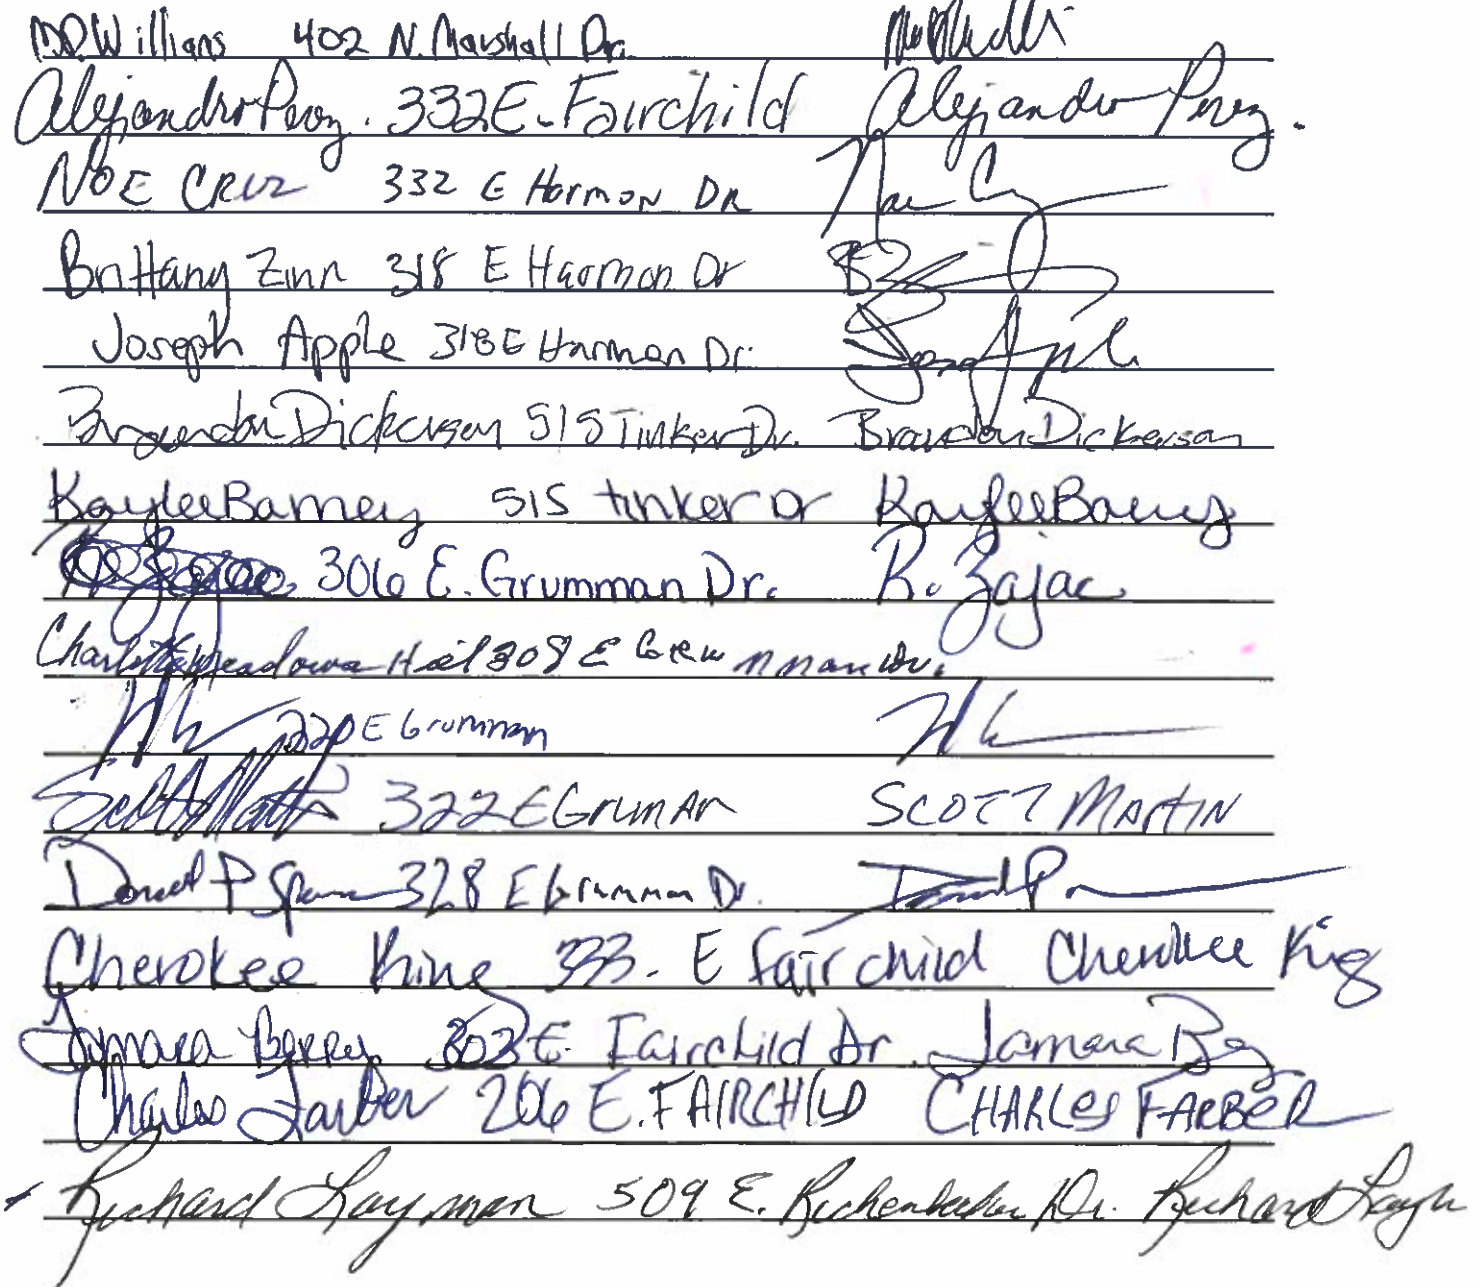 M.D. Willians 402 N. Marshall Dr.
Alejandro Perez. 332 E. Fairchild Alejandro Perez.
NOE CRUZ 332 E Harmon DR Noe C
Brittany Zinn 318 E Harmon Dr BZ
Joseph Apple 318 E Harmon Dr.
Brandon Dickerson 515 Tinker Dr. Brandon Dickerson
Kaylee Barney 515 tinker Dr Kaylee Barney
306 E. Grumman Dr. R. Zajac
Charlotte Meadows 308 E Grumman Dr.
220 E Grumman
Scott Martin 322 E Gruman SCOTT MARTIN
Donald P 328 E Grumman Dr. Donald P
Cherokee King 333. E Fairchild Cherokee King
Tamara Berry 303 E. Fairchild Dr. Tamara Berry
Charles Farber 206 E. FAIRCHILD CHARLES FARBER
Richard Layman 509 E. Richenbacker Dr. Richard Layman